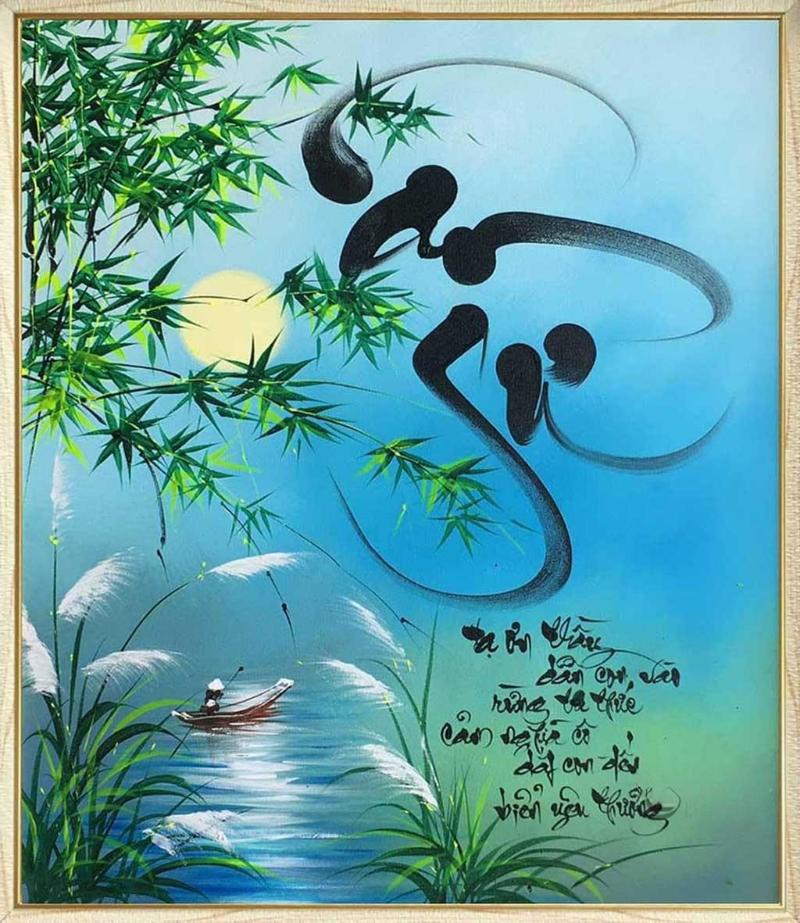 Ân
Sư
Tạ ơn thầy
dẫn con vào
rừng tri thức
Cảm nghĩa cô
dắt con đến
biển yêu thương